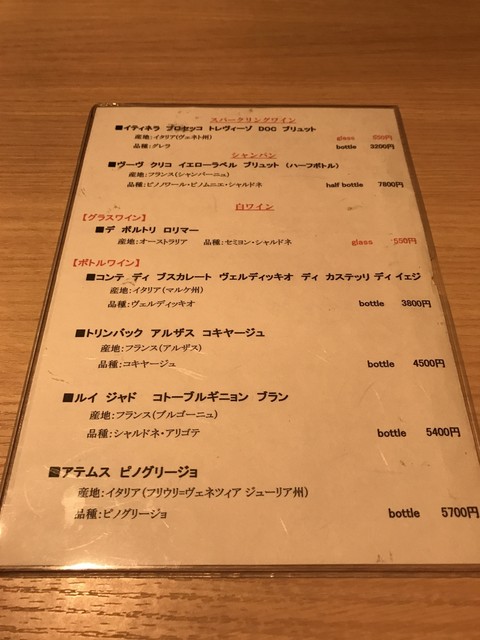 スパークリングワイン
■イティネラ プロセッコ トレヴィーゾ DOC ブリュット
産地:イタリア(ヴェネト州) glass 550円
品種:グレラ bottle 3200円
シャンパン
■ヴーヴ クリコ イエローラベル ブリュット (ハーフボトル)
産地:フランス(シャンパーニュ)
品種:ピノノワール・ピノムニエ・シャルドネ half bottle 7800円
白ワイン
【グラスワイン】
■デ ボルトリ ロリマー
産地:オーストラリア 品種:セミヨン・シャルドネ glass 550円
【ボトルワイン】
■コンテ ディ ブスカレート ヴェルディッキオ ディ カステッリ ディ イェジ
産地:イタリア(マルケ州)
品種:ヴェルディッキオ bottle 3800円
■トリンバック アルザス コキヤージュ
産地:フランス(アルザス)
品種:コキヤージュ bottle 4500円
■ルイ ジャド コトーブルギニョン ブラン
産地:フランス(ブルゴーニュ)
品種:シャルドネ・アリゴテ bottle 5400円
■アテムス ピノグリージョ
産地:イタリア(フリウリ=ヴェネツィア ジューリア州)
品種:ピノグリージョ bottle 5700円